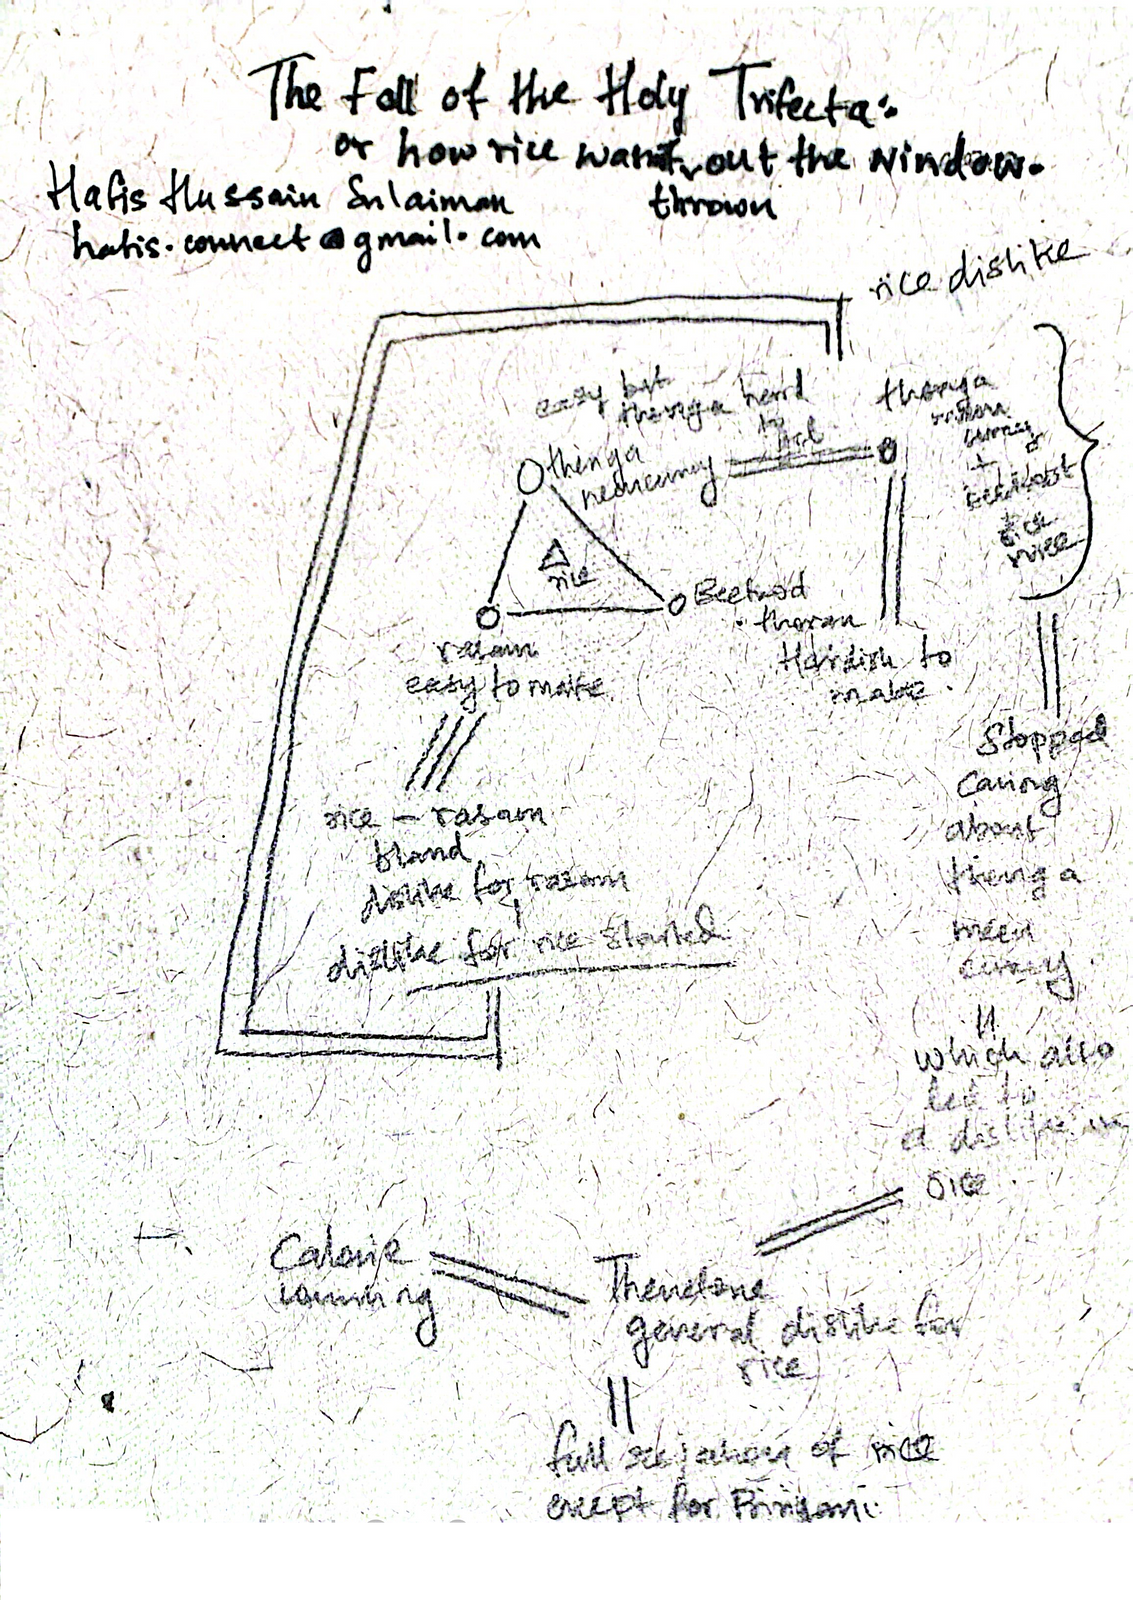 The Fall of the Holy Trifecta:
or how rice was out the window.
thrown
Hafis Hussain Sulaiman
hafis.connect@gmail.com
rice dislike
easy but
thenga hard
to
thenga
thenga
curry
+
rice
rice
Beetrood
thoran
Hardish to
make.
rasam
easy to make
rice - rasam
bland
dislike for rasam
dislike for rice started
Stopped
caring
about
thenga
meen
curry
which also
led to
a dislike in
rice
Calorie
counning
Therefore
general dislike for
rice
full of rice
except for Biriyani.